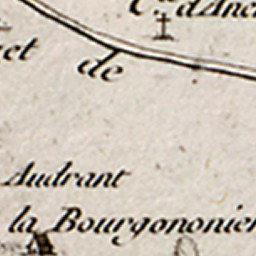 C.^x d'Anc
et de
Audrant
la Bourgononier